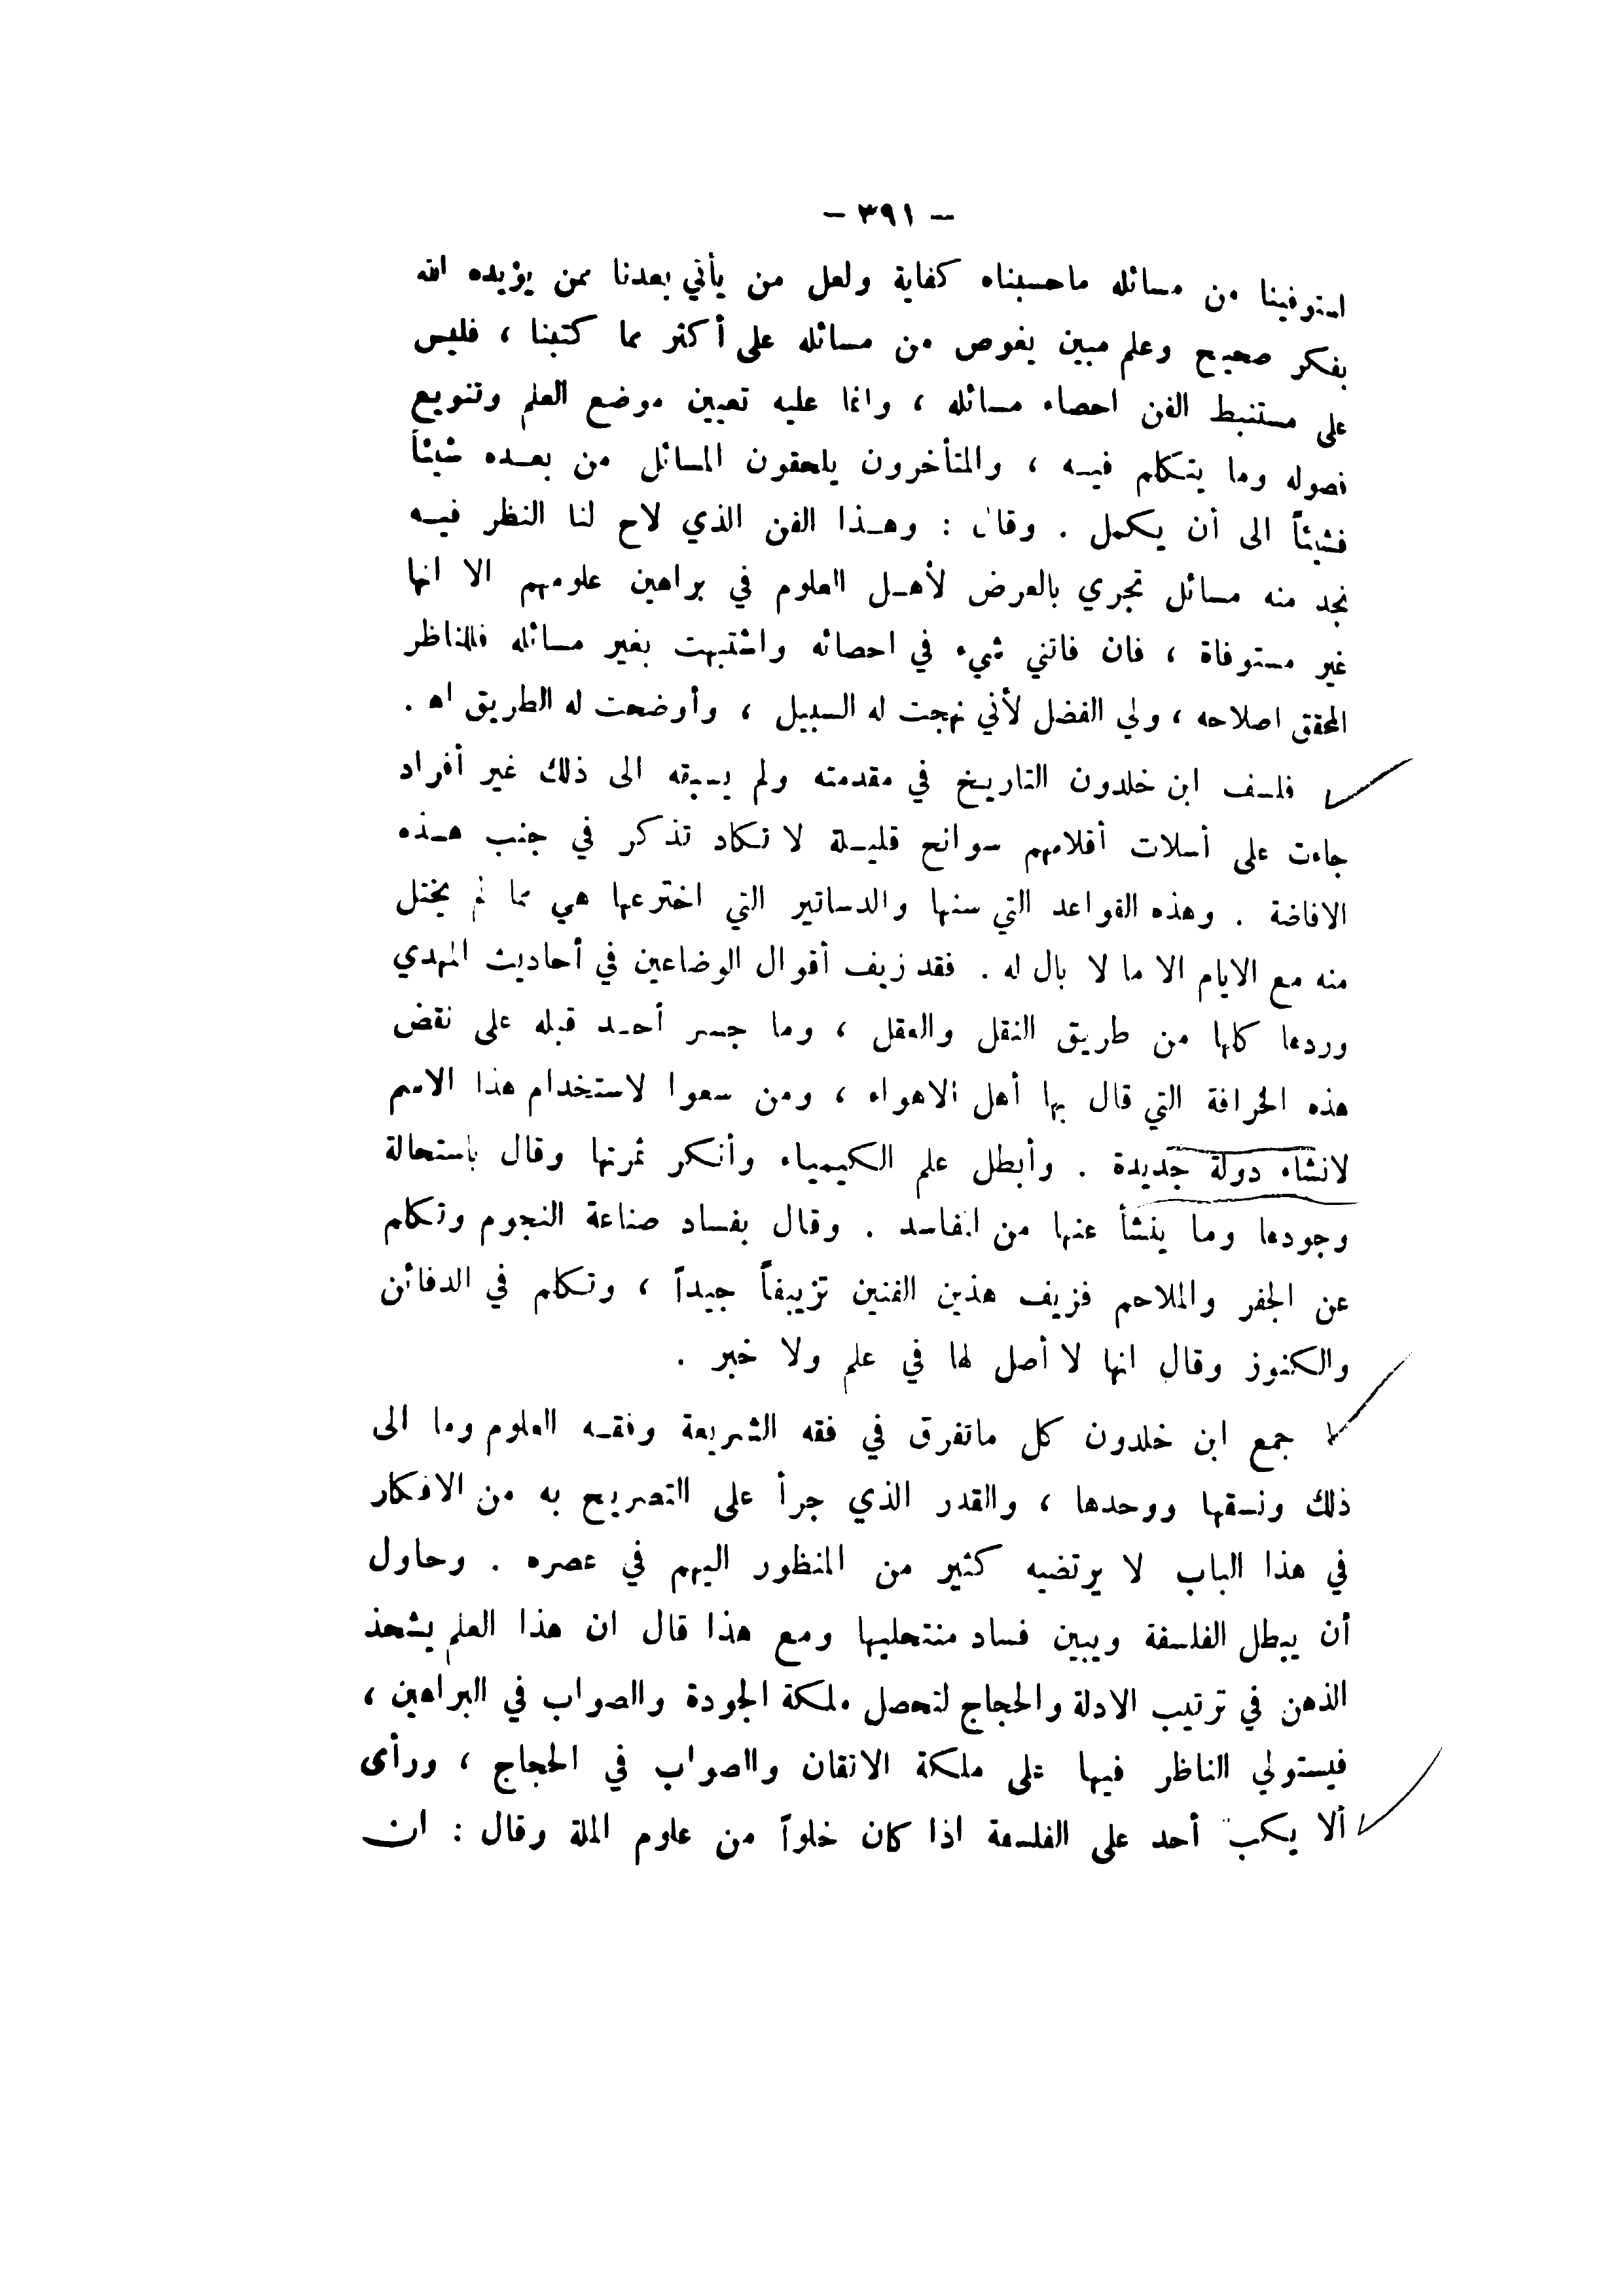 – ٣٩١ –
استوفينا من مسائله ماحسبناه كفاية ولعل من يأتي بعدنا ممن يؤيده الله
بفكر صحيح وعلم مبين يغوص من مسائله على أكثر مما كتبنا ، فليس
على مستنبط الفن احصاء مسائله ، وانما عليه تعيين موضع العلم وتنويع
فصوله وما يتكلم فيه ، والمتأخرون يلحقون المسائل من بعده شيئاً
فشيئاً الى أن يكمل . وقال : وهذا الفن الذي لاح لنا النظر فيه
نجد منه مسائل تجري بالعرض لأهل العلوم في براهين علومهم الا انها
غير مستوفاة ، فان فاتني شيء في احصائه واشتبهت بغير مسائله فللناظر
المحقق اصلاحه ، ولي الفضل لأني نهجت له السبيل ، وأوضحت له الطريق اه .
فلسف ابن خلدون التاريخ في مقدمته ولم يسبقه الى ذلك غير أفراد
جاءت على أسلات أقلامهم سوانح قليلة لا تكاد تذكر في جنب هذه
الافاضة . وهذه القواعد التي سنها والدساتير التي اخترعها هي مما لم يختل
منه مع الايام الا ما لا بال له . فقد زيف أقوال الوضاعين في أحاديث المهدي
وردها كلها من طريق النقل والعقل ، وما جسر أحد قبله على نقض
هذه الخرافة التي قال بها أهل الاهواء ، ومن سعوا لاستخدام هذا الاسم
لانشاء دولة جديدة . وأبطل علم الكيمياء وأنكر ثمرتها وقال باستحالة
وجودها وما ينشأ عنها من المفاسد . وقال بفساد صناعة النجوم وتكلم
عن الجفر والملاحم فزيف هذين الفنين تزييفاً جيداً ، وتكلم في الدفائن
والكنوز وقال انها لا أصل لها في علم ولا خبر .
جمع ابن خلدون كل ماتفرق في فقه الشريعة وفقه العلوم وما الى
ذلك ونسقها ووحدها ، والقدر الذي جرأ على التصريح به من الافكار
في هذا الباب لا يرتضيه كثير من المنظور اليهم في عصره . وحاول
أن يبطل الفلسفة ويبين فساد منتحليها ومع هذا قال ان هذا العلم يشحذ
الذهن في ترتيب الادلة والحجاج لتحصل ملكة الجودة والصواب في البراهين ،
فيستولي الناظر فيها على ملكة الاتقان والصواب في الحجاج ، ورأى
ألا يكب أحد على الفلسفة اذا كان خلواً من علوم الملة وقال : ان